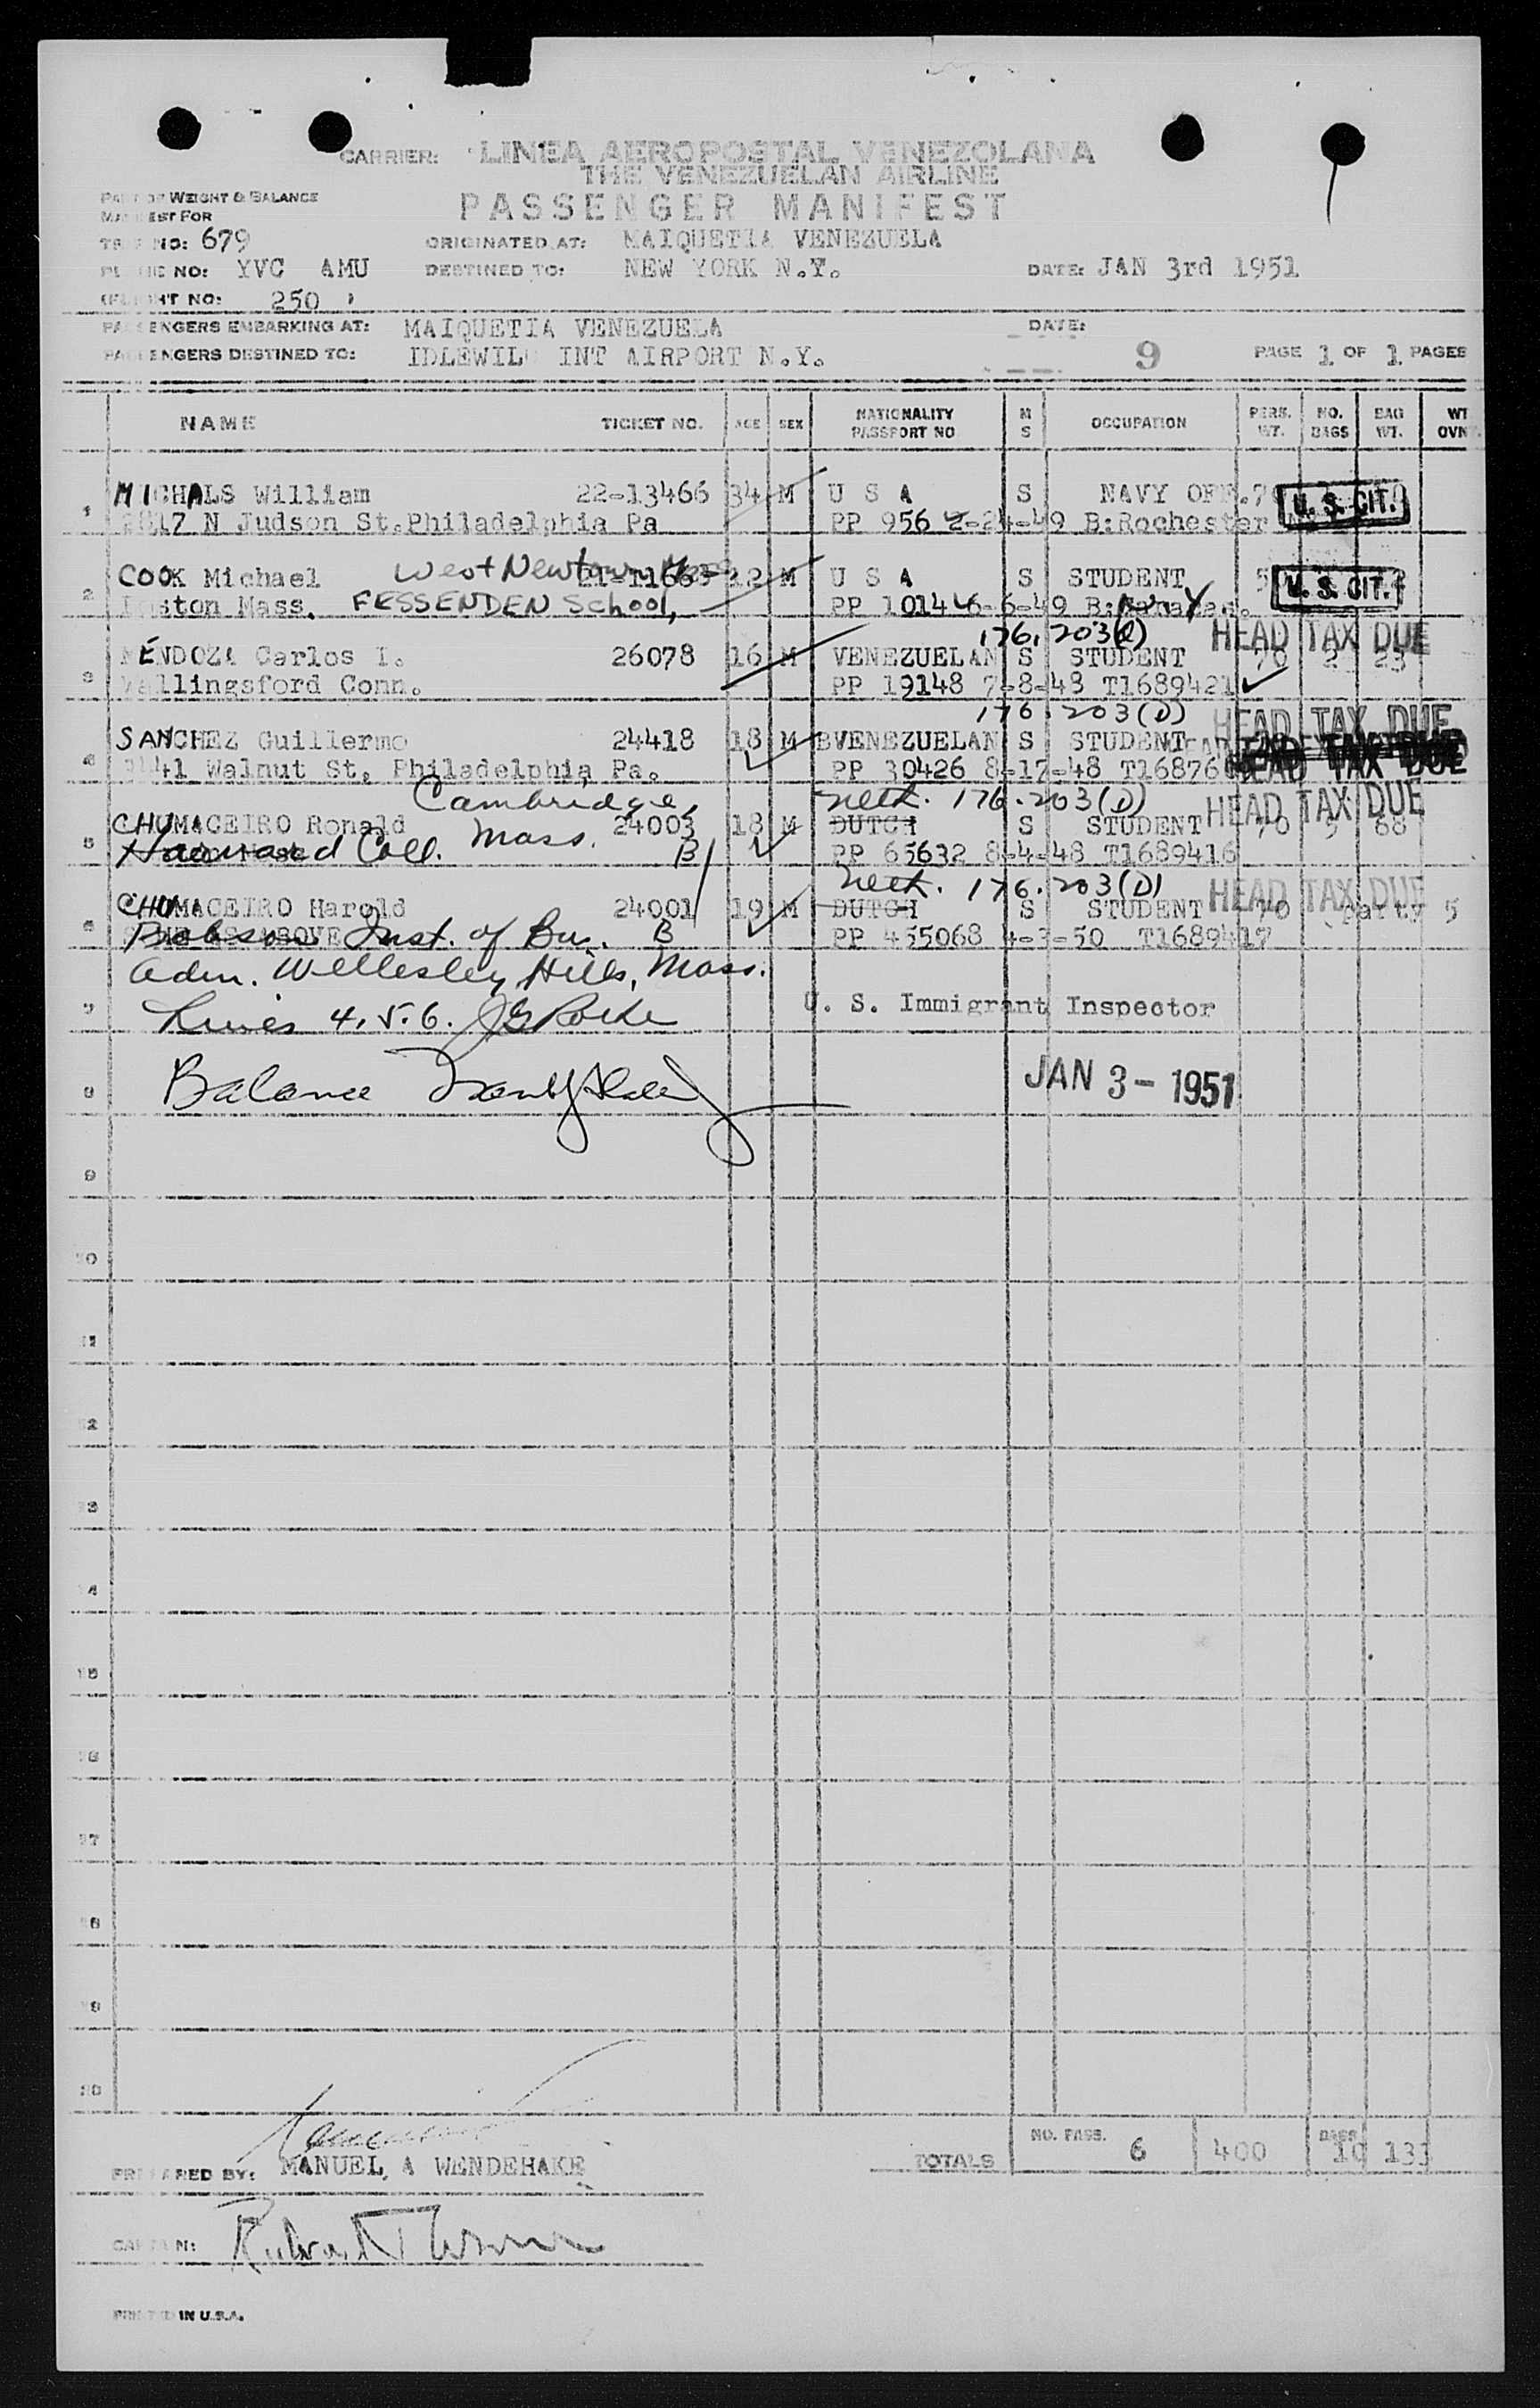 CARRIER: LINEA AEROPOSTAL VENEZOLANA
THE VENEZUELAN AIRLINE
PASSENGER MANIFEST
PART OF WEIGHT & BALANCE
MANIFEST FOR
TRIP NO: 679 ORIGINATED AT: MAIQUETIA VENEZUELA
PLANE NO: YVC AMU DESTINED TO: NEW YORK N.Y. DATE: JAN 3rd 1951
FLIGHT NO: 250
PASSENGERS EMBARKING AT: MAIQUETIA VENEZUELA DATE:
PASSENGERS DESTINED TO: IDLEWILD INT AIRPORT N.Y. 9 PAGE 1 OF 1 PAGES
NAME TICKET NO. AGE SEX NATIONALITY PASSPORT NO M S OCCUPATION PERS. WT. NO. BAGS BAG WT. WT OVN.
1 MICHALS William 22-13466 34 M U S A S NAVY OFF. U. S. CIT.
N Judson St. Philadelphia Pa PP 956 2-24-49 B:Rochester
2 COOK Michael West Newtown Mass 12 M U S A S STUDENT U. S. CIT.
Boston Mass. FESSENDEN School, PP 10144 6-6-49 N Y
176.203(D) HEAD TAX DUE
3 MENDOZA Carlos I. 26078 16 M VENEZUELAN S STUDENT 70 2 23
Wallingsford Conn. PP 19148 7-8-48 T1689421
176.203(D) HEAD TAX DUE
4 SANCHEZ Guillermo 24418 18 M VENEZUELAN S STUDENT
3441 Walnut St. Philadelphia Pa. PP 30426 8-17-48 HEAD TAX DUE
Cambridge, Neth. 176.203(D) HEAD TAX DUE
5 CHUMACEIRO Ronald Mass. 24003 18 M DUTCH S STUDENT 70 5 68
Harvard Coll. B PP 65632 8-4-48 T1689416
Neth. 176.203(D) HEAD TAX DUE
6 CHUMACEIRO Harold 24001 19 M DUTCH S STUDENT 70 Party 5
Babson Inst. of Bu. B PP 455068 4-3-50 T1689417
Adm. Wellesley Hills, Mass.
7 Lines 4.5.6. U. S. Immigrant Inspector
8 Balance JAN 3 - 1951
9
10
11
12
13
14
15
16
17
18
19
20
TOTALS NO. PASS. 6 400 BAGS 10 133
PREPARED BY: MANUEL A WENDEHAKE
CAPTAIN:
PRINTED IN U.S.A.